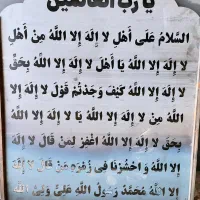 يا رب العالمين
السَّلامُ عَلَى أَهْلِ لا إِلهَ إِلا اللهُ مِنْ أَهْلِ
لا إِلهَ إِلا اللهُ يا أَهْلَ لا إِلهَ إِلا اللهُ بِحَقِّ
لا إِلهَ إِلا اللهُ كَيْفَ وَجَدْتُمْ قَوْلَ لا إِلهَ
إِلا اللهُ مِنْ لا إِلهَ إِلا اللهُ يا لا إِلهَ إِلا اللهُ
بِحَقِّ لا إِلهَ إِلا اللهُ اغْفِرْ لِمَنْ قالَ لا إِلهَ
إِلا اللهُ وَ احْشُرْنا فِي زُمْرَةِ مَنْ قالَ لا إِلهَ
إِلا اللهُ مُحَمَّدٌ رَسُولُ اللهِ عَلِيٌّ وَلِيُّ اللهِ